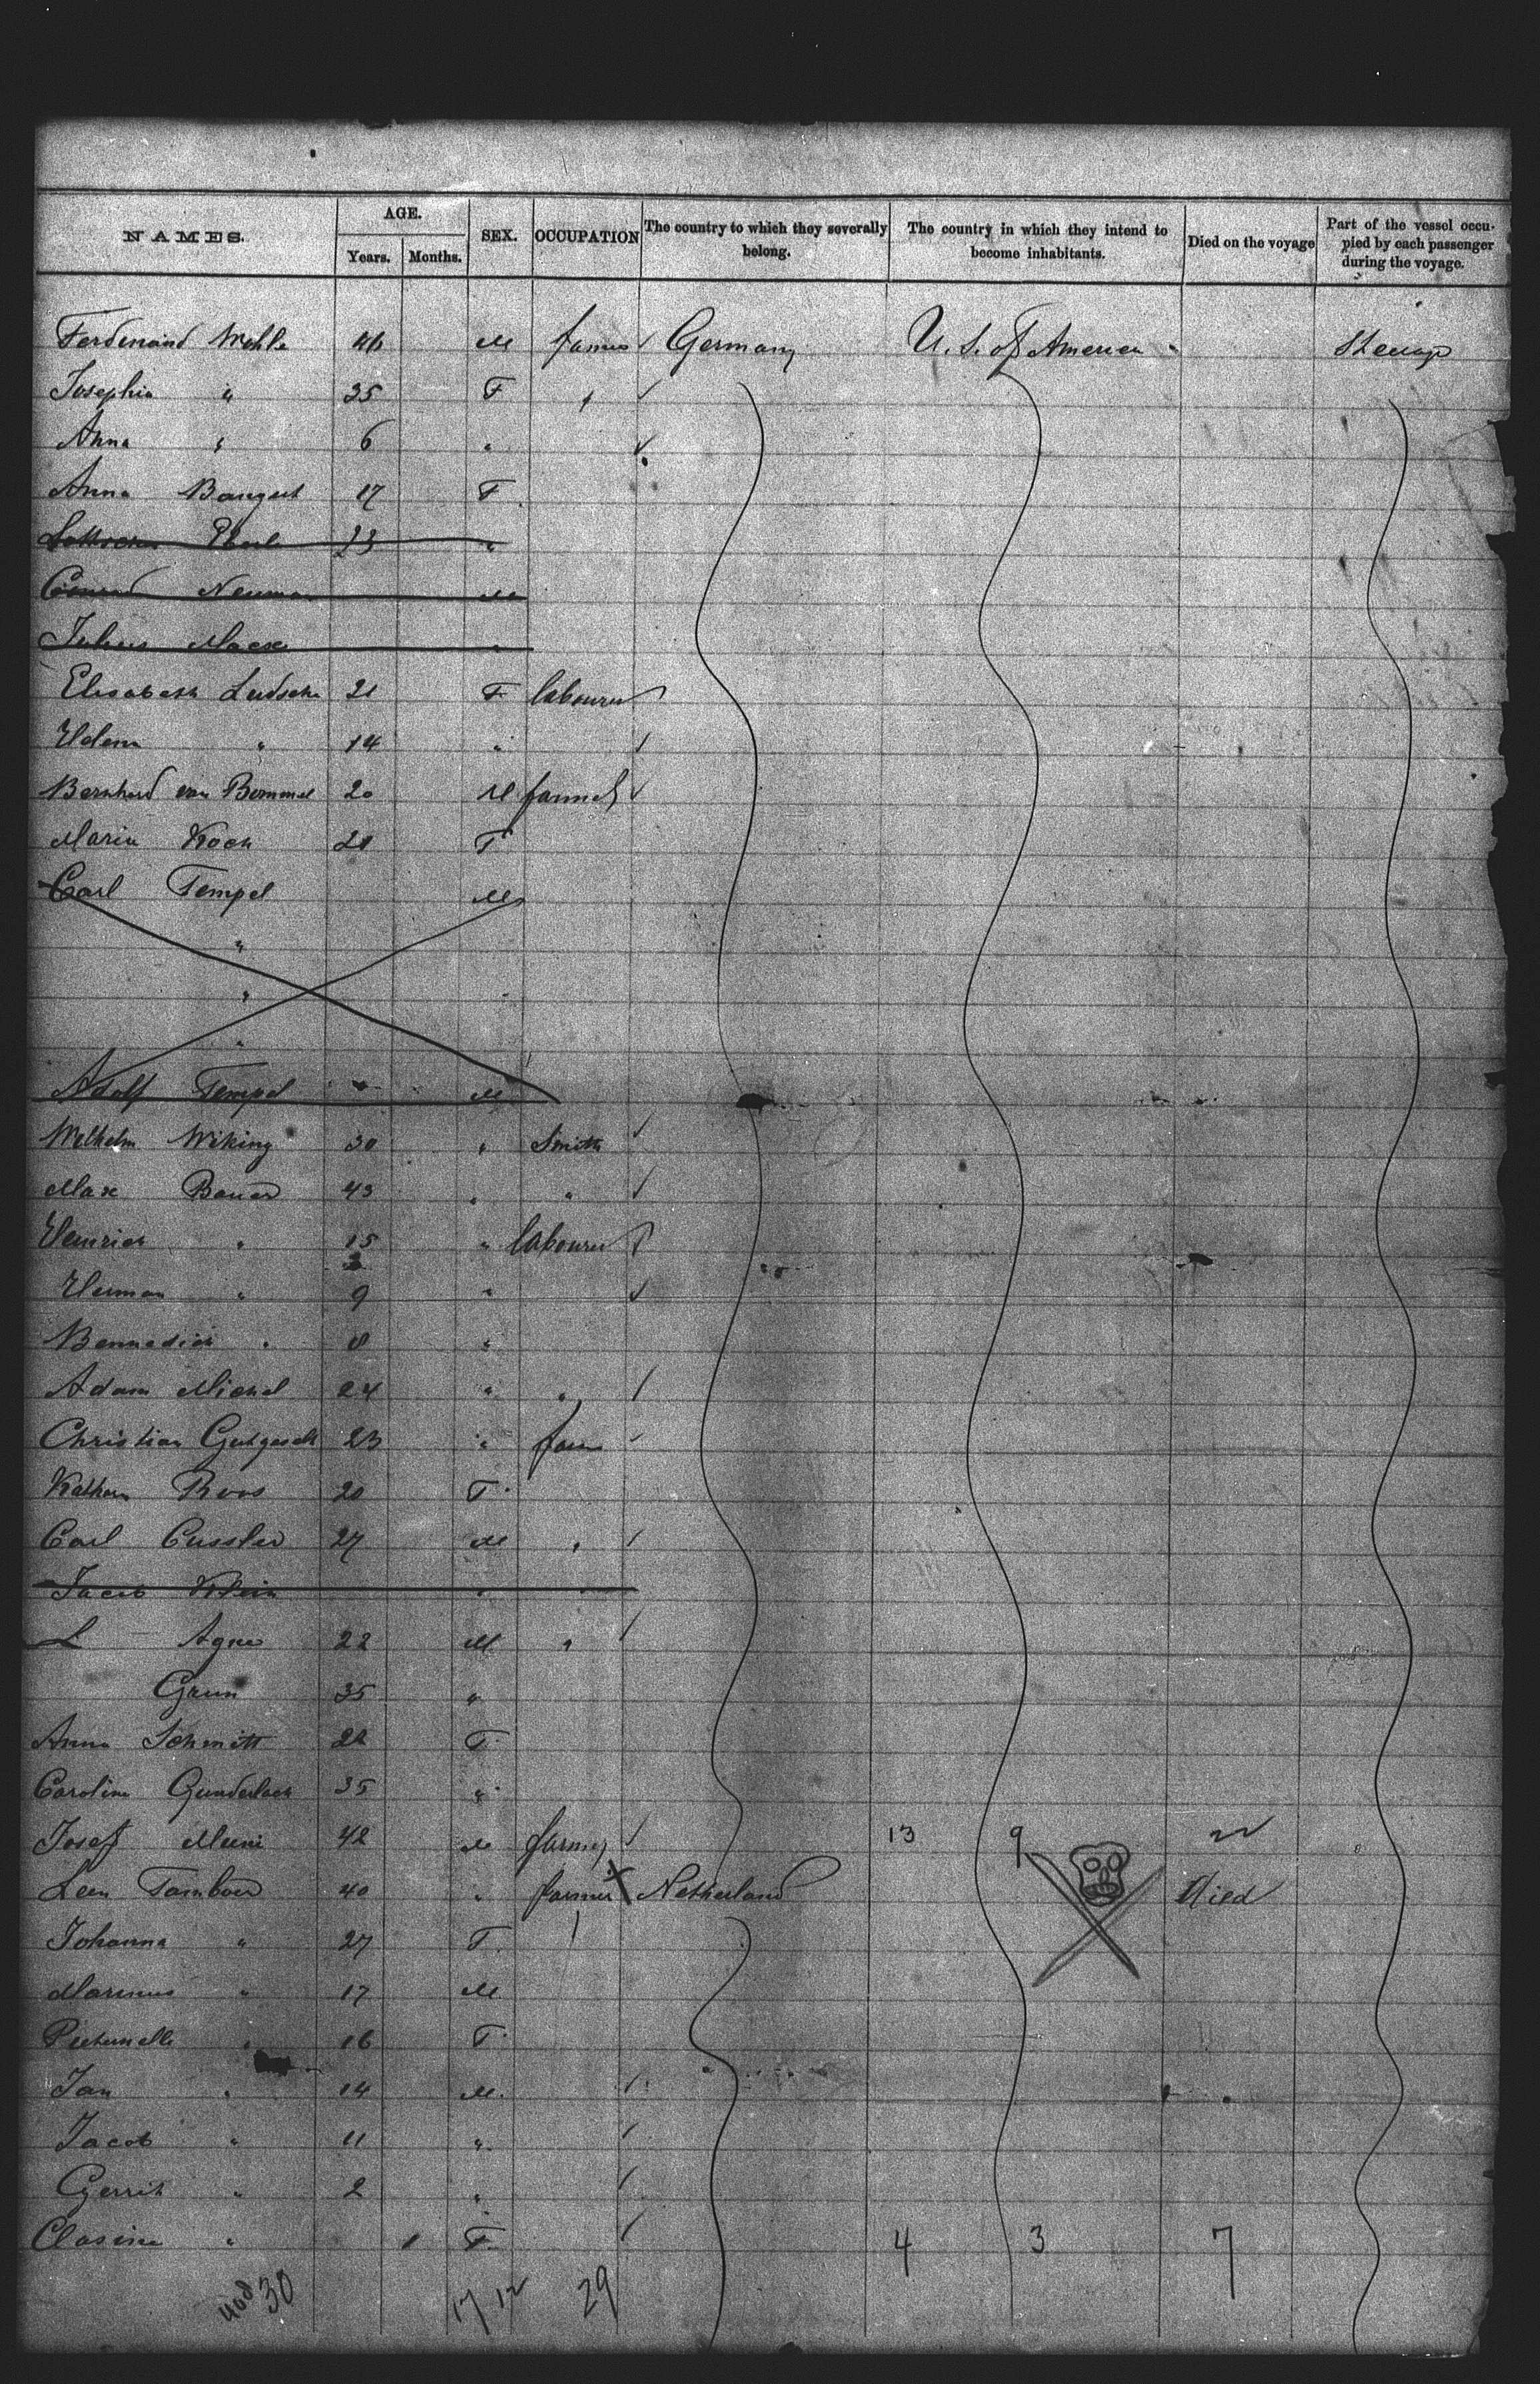 NAMES. AGE. SEX. OCCUPATION The country to which they severally belong. The country in which they intend to become inhabitants. Died on the voyage Part of the vessel occupied by each passenger during the voyage.
Years. Months.
Ferdinand Mohle 46 M farmer Germany U. S. of America Steerage
Josephin " 35 F "
Anna " 6 "
Anna Bangert 17 F
23 "
Conrad Neuman M
Julius "
Elisabeth 21 F labourer
Helena " 14 "
Bernhard van Bommel 20 M farmer
Maria Koch 20 F
Carl Tempel M
"
"
"
Adolf Tempel " M
Wilhelm Wiking 30 " Smith
Max Bauer 43 " "
Heinrich " 15 " labourer
3
Herman " 9 "
Bennedich " 8 "
Adam Michel 24 " "
Christian Gutgesell 23 " farm
Kathar Roos 20 F
Carl Cussler 27 M "
Jacob Klein "
L Agne 22 M "
Grun 35 "
Anna Schmitt 22 F
Carolina Gunderlach 35 "
Josef 42 M farmer 13 9 22
Leen Tamboer 40 " farmer X Netherland Died
Johanna " 27 F
Marinus " 17 M
Pieternella " 16 F
Jan " 14 M.
Jacob " 11 "
Gerrit " 2 "
Clasina " 1 F 4 3 7
30 17 12 29